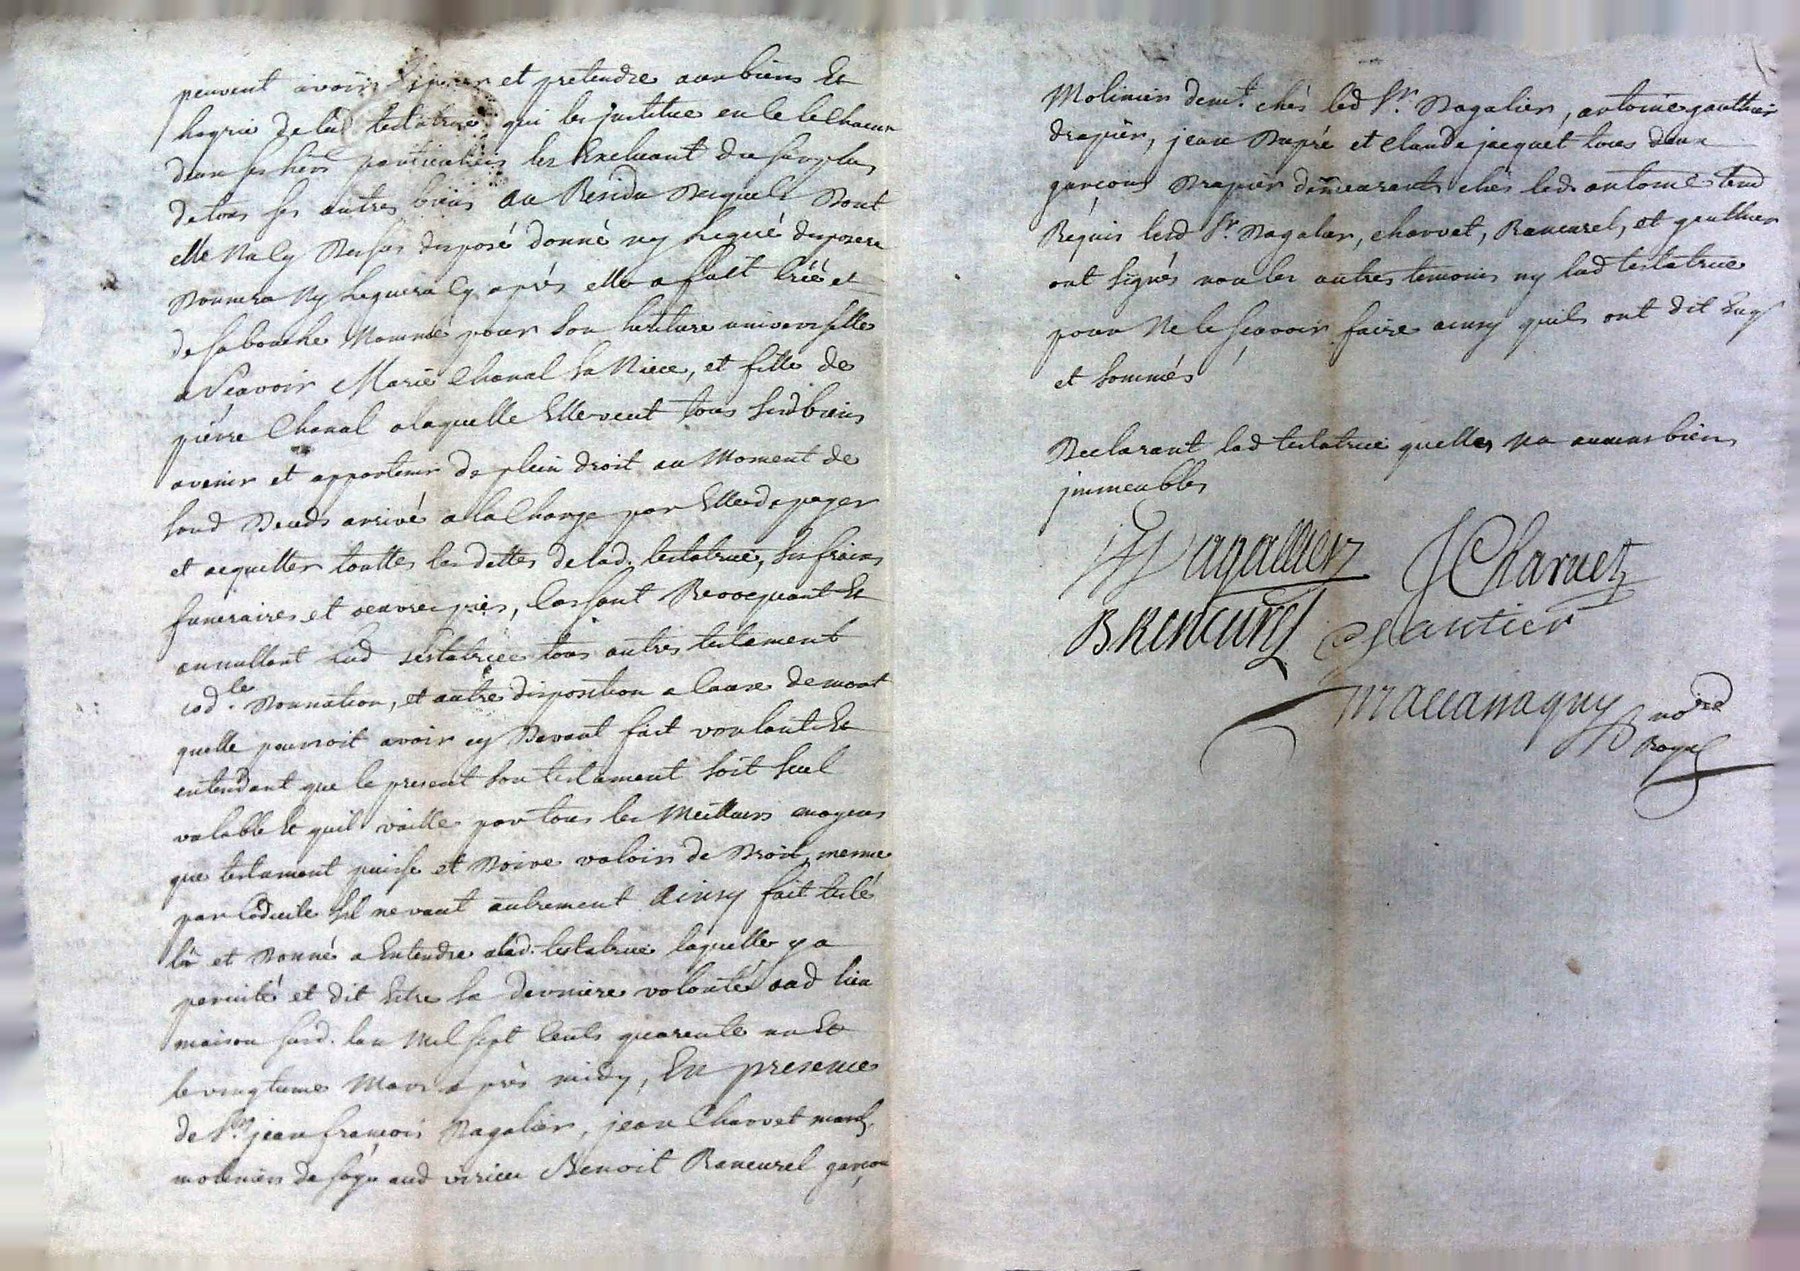 peuvent avoir et pretendre aux biens Et
hoyrie de lad testatrice qui les jnstitue en ce le chacun
deux ses hers particuliers les Excluant du surplus
de tous ses autres biens au Residu Desquels Dont
elle Na cy Dessus disposé donné ny Legué disposera
Donnera Ny Leguera Cy après elle a fait Créé et
de sa bouche Nommé pour son heritiere universelle
a Scavoir Marie Chanal sa Niece, et fille de
pierre Chanal a laquelle Elle veut tous sesd biens
avenir et appartenir de plein droit au Moment de
sond Deceds arrivé a la Charge par Elle de payer
et acquitter touttes les dettes de lad. testatrice, ses frais
funeraires et oeuvres pies, Cassant Revocquant Et
annullant lad testatrice tous autres testament
cod.le Donnation, et autre disposition a Cause de mort
quelle pourroit avoir cy Devant fait voulant Et
entendant que le present son testament soit seul
valable Et quil vaille par tous les Meilleurs moyens
que testament puisse et Doive valoir de Droit, meme
par Codicile Sil ne vaut autrement Ainsy fait recité
lû et Donné a Entendre alad. testatrice laquelle y a
percisté et dit Estre sa derniere volonté aud lieu
maison susd. lan Mil sept Cents quarente un Et
le vingtieme Mars après midy, En presence
de Srs jean françois Pagalier, jean Charvet march
moliniers de soye aud virieu Benoit Rencurel garçon
Molinier demt. chés led Sr. Pagalier, antoine gauthier
drapier, jean Dupré et Claude jacquet tous deux
garçons Drapier demeurants chés led. antoine tesd
Réquis lesd Sr. Pagalier, charvet, Rencurel, et gauthier
ont signés non les autres temoins ny lad testatrice
pour Ne le scavoir faire ainsy quils ont dit Enqs
et sommés
Declarant lad testatrice quelle Na aucuns biens
jmmeubles
Pagallier J Charvet
B Rencurel Gautier
Maccanaguy noire
Royal